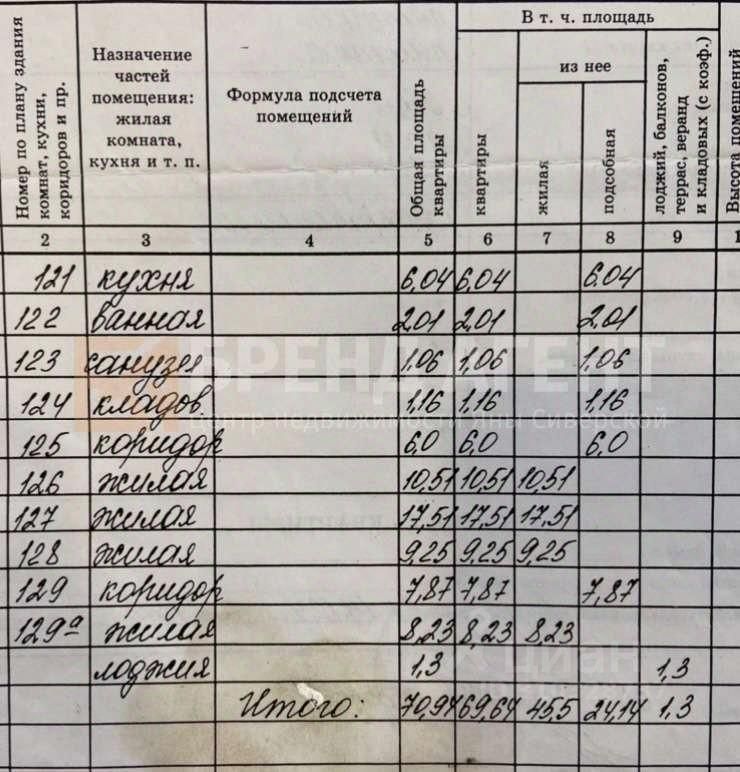 В т. ч. площадь
из нее
Номер по плану здания комнат, кухни, коридоров и пр.
Назначение частей помещения: жилая комната, кухня и т. п.
Формула подсчета помещений
Общая площадь квартиры
квартиры
жилая
подсобная
лоджий, балконов, террас, веранд и кладовых (с коэф.)
Высота помещений
2 3 4 5 6 7 8 9 1
121 кухня 6,04 6,04 6.04
122 ванная 2,01 2,01 2,01
123 санузел 1,06 1,06 1,06
БРЕНД АГЕНТ
124 кладов. 1,16 1,16 1,16
Центр недвижимости Яны Сиверской
125 коридор 6,0 6,0 6,0
126 жилая 10,51 10,51 10,51
127 жилая 17,51 17,51 17,51
128 жилая 9,25 9,25 9,25
129 коридор 7,87 7,87 7,87
129а жилая 8,23 8,23 8,23
лоджия 1,3 1,3
циан
Итого: 70,94 69,64 45,5 24,14 1,3